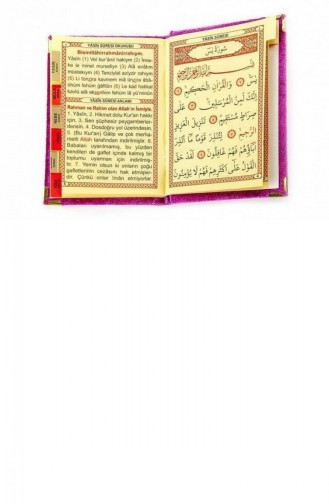 YÂSİN SÛRESİ OKUNUŞU
Bismillâhirrahmânirrahıym.
Yâsîn (1) Vel kur'ânil hakiym (2) İnne-
ke le minel murseliyn (3) Alâ sırâtım
müstekıym (4) Tenziylel aziyzir rahıym
(5) Li tünzira kavmem mâ ünzira âbâ-
ühüm fehüm ğâfilûn (6) Le kad hakkal
kavlü alâ ekserihim fehüm lâ yü'minûn
YÂSİN SÛRESİ ANLAMI
Rahman ve Rahim olan Allah'ın İsmiyle.
1. Yâsîn, 2. Hikmet dolu Kur'an hakkı
için, 3. Sen şüphesiz peygamberler-
densin. 4. Dosdoğru yol üzerindesin.
5. (Bu Kur'an) Galip ve çok merha-
metli Allah tarafından indirilmiştir. 6.
Babaları uyarılmamış, bu yüzden
kendileri de gaflet içinde kalmış bir
toplumu uyarman için indirilmiş-
tir. 7. Yemin olsun ki onların çoğu
gafletlerinin cezasını hak etmişler-
dir. Çünkü onlar îmân etmiyorlar.
YÂSİN SÛRESİ
سُورَةُ يٰسٓ
بِسْمِ اللّٰهِ الرَّحْمٰنِ الرَّحِيمِ
يٰسٓ ۞ وَالْقُرْاٰنِ الْحَكِيمِ ۞
اِنَّكَ لَمِنَ الْمُرْسَلِينَ ۞ عَلٰى
صِرَاطٍ مُسْتَقِيمٍ ۞ تَنْزِيلَ الْعَزِيزِ
الرَّحِيمِ ۞ لِتُنْذِرَ قَوْمًا مَا اُنْذِرَ
اٰبَاؤُهُمْ فَهُمْ غَافِلُونَ ۞ لَقَدْ حَقَّ
الْقَوْلُ عَلٰى اَكْثَرِهِمْ فَهُمْ لَا يُؤْمِنُونَ